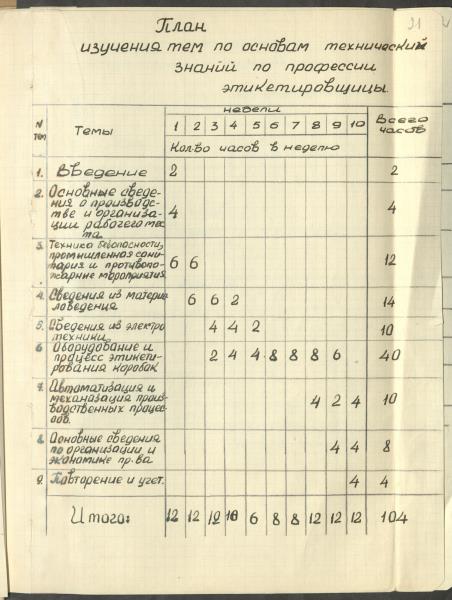 21
План
изучения тем по основам технический
знаний по профессии
этикетировщицы.
N тем Темы недели Всего часов
1 2 3 4 5 6 7 8 9 10
Кол-во часов в неделю
1. Введение 2 2
2. Основные сведе-
ния о производс-
тве и организа- 4 4
ции рабочего мес
та
3. Техника безопасности,
промышленная сани
тария и противопо- 6 6 12
жарные мероприятия
4. Сведения из материа 2 6 6 2 14
ловедения
5. Сведения из электро 4 4 2 10
техники
6 Оборудование и
процесс этикети- 2 4 4 8 8 8 8 6 40
рования коробак
7. Автоматизация и
механазация произ- 4 2 4 10
водственных процес-
сов.
8. Основные сведения
по организации и 4 4 8
экономике пр.ва
9. Повторение и учет. 4 4
Итого: 12 12 12 10 6 8 8 12 12 12 104